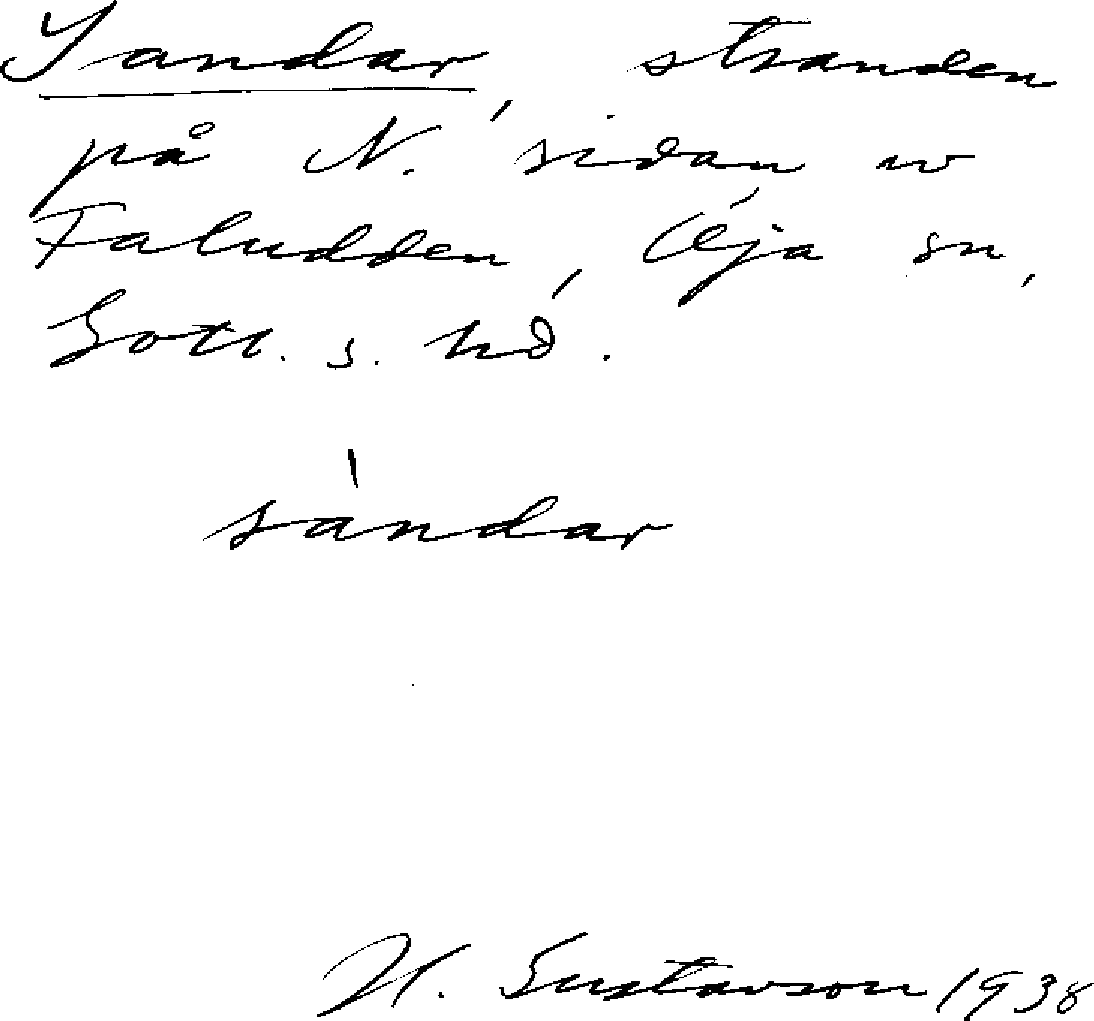 Sandar, stranden
på N. sidan av
Faludden, Öja sn,
Gotl. s. hd.
sàndar
H. Gustavson 1938